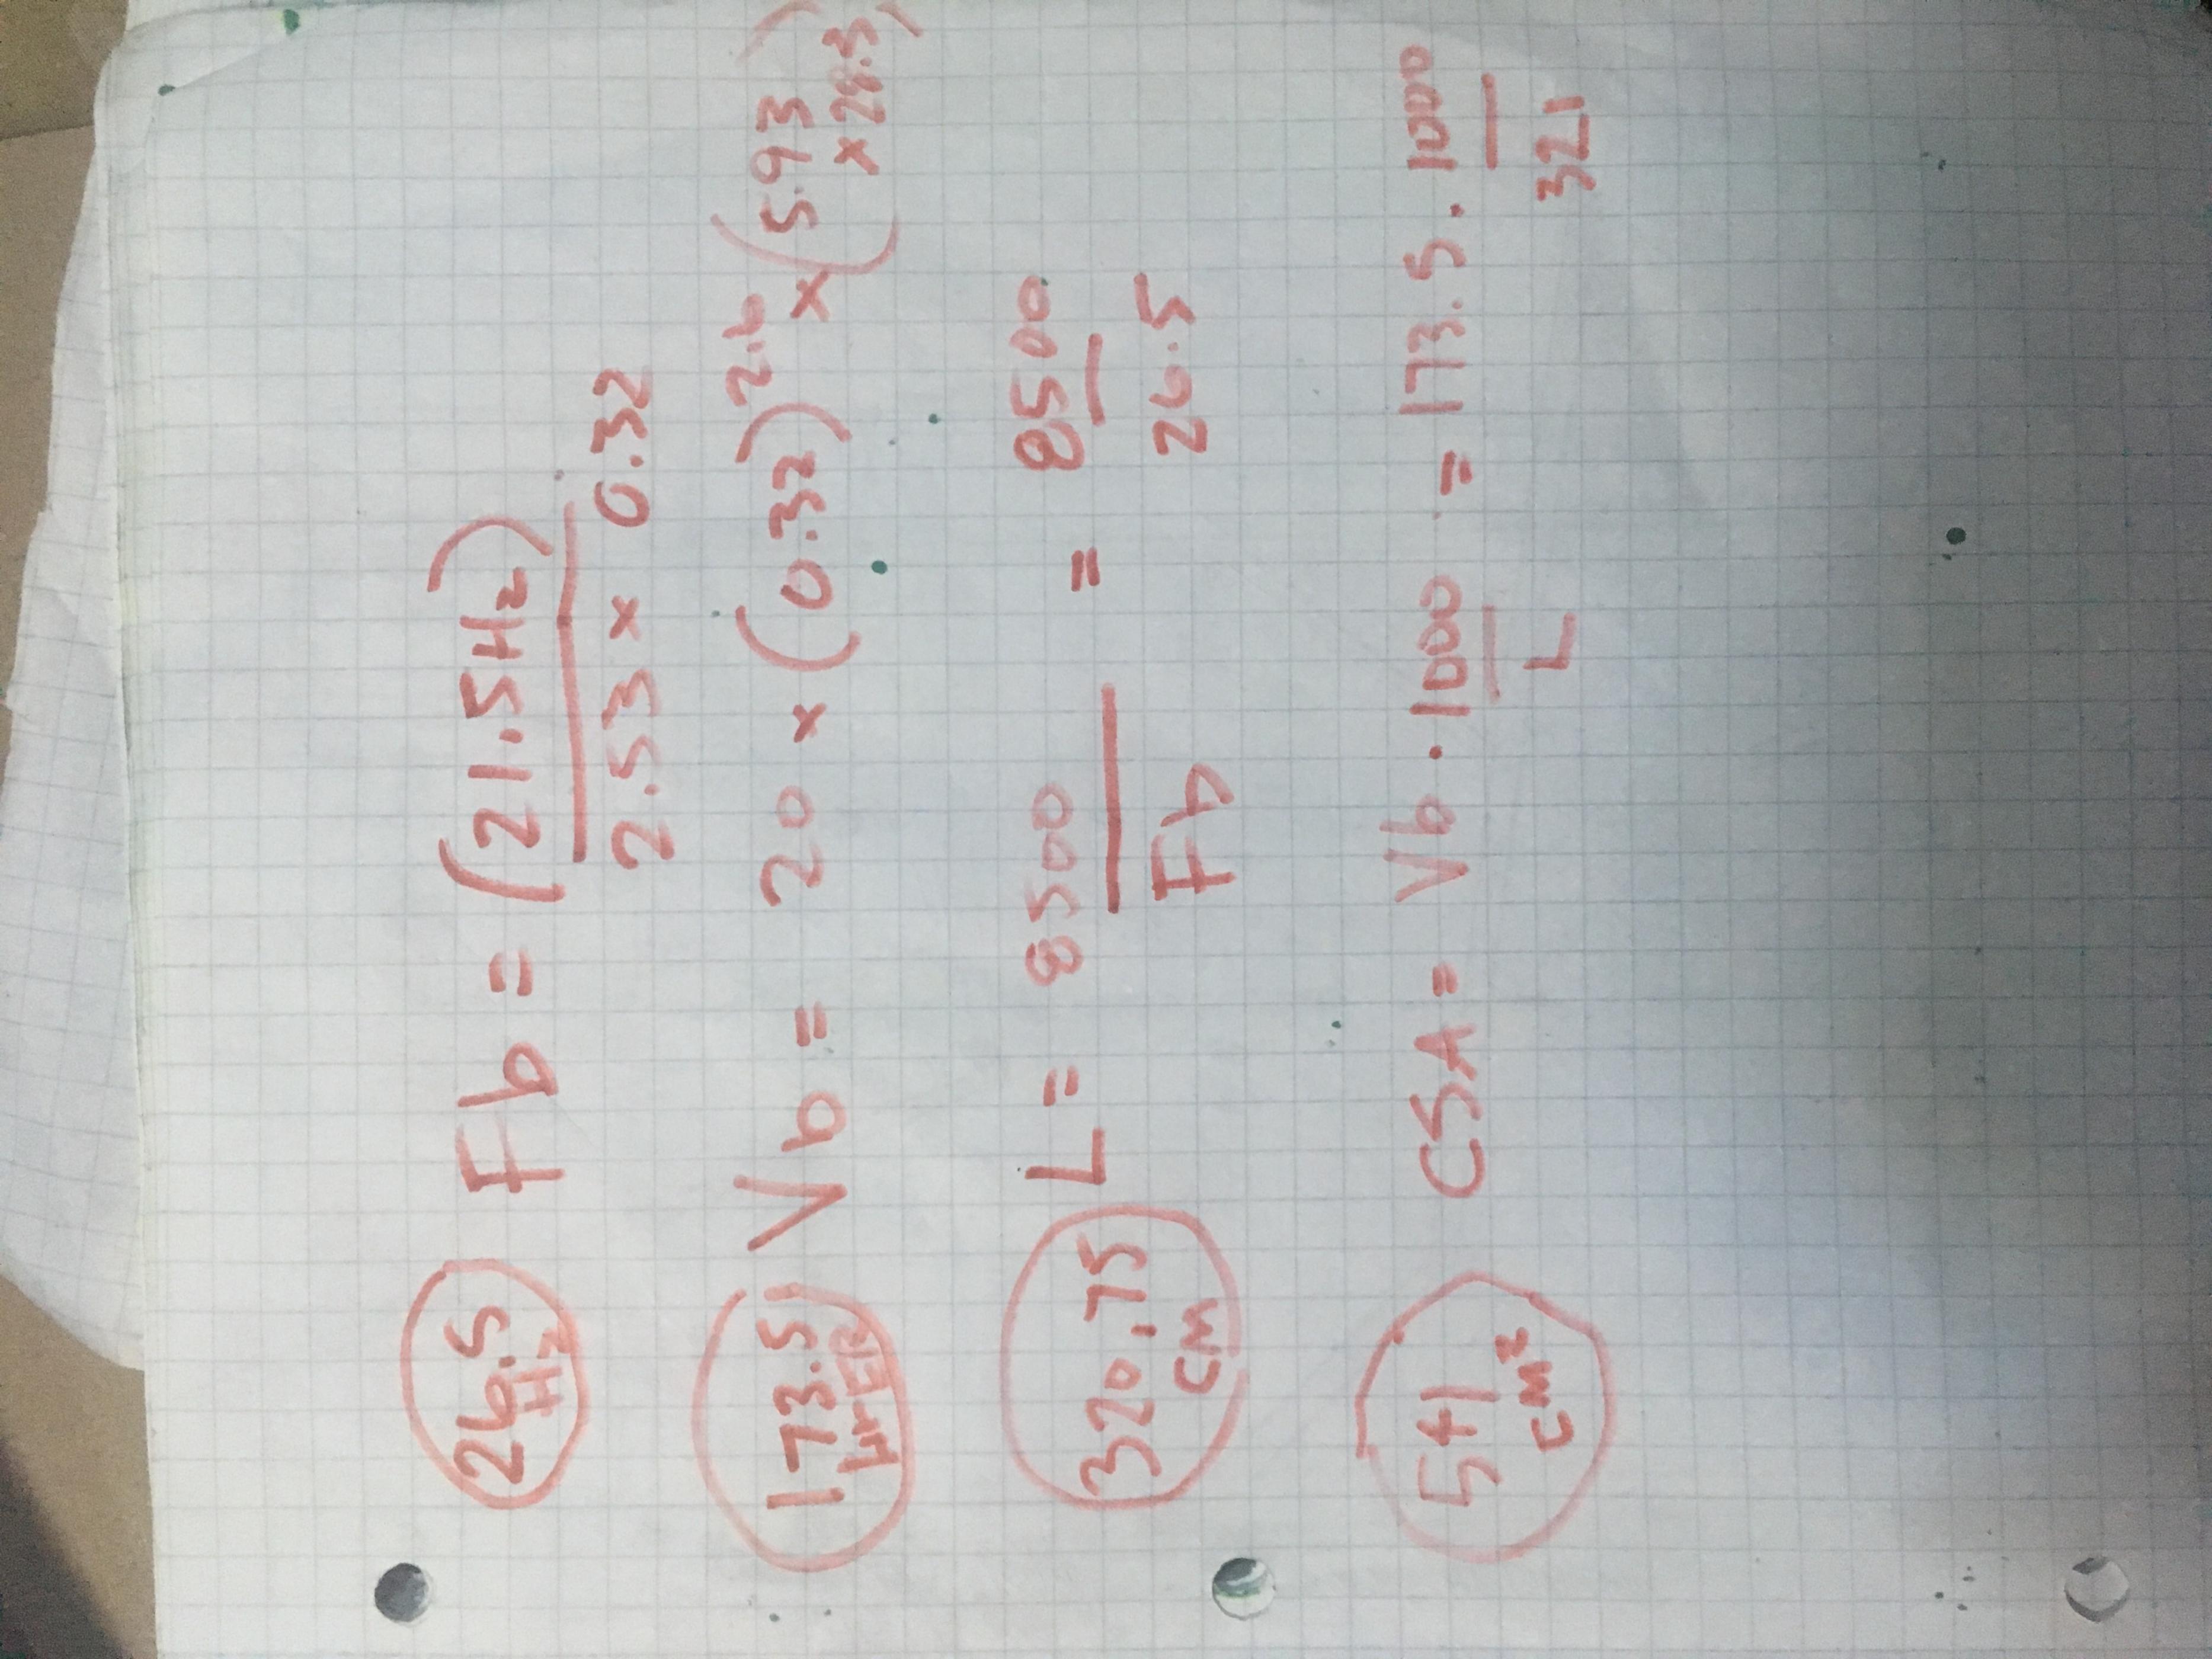 26.5 Hz Fb = (21.5Hz)
2.53 x 0.32
173.5 LITER Vb = 20 x (0.32)^2.6 x (5.93
x 28.3)
320.75 CM L = 8500 / Fb = 8500 / 26.5
541 CM² CSA = Vb · 1000 / L = 173.5 · 1000 / 321